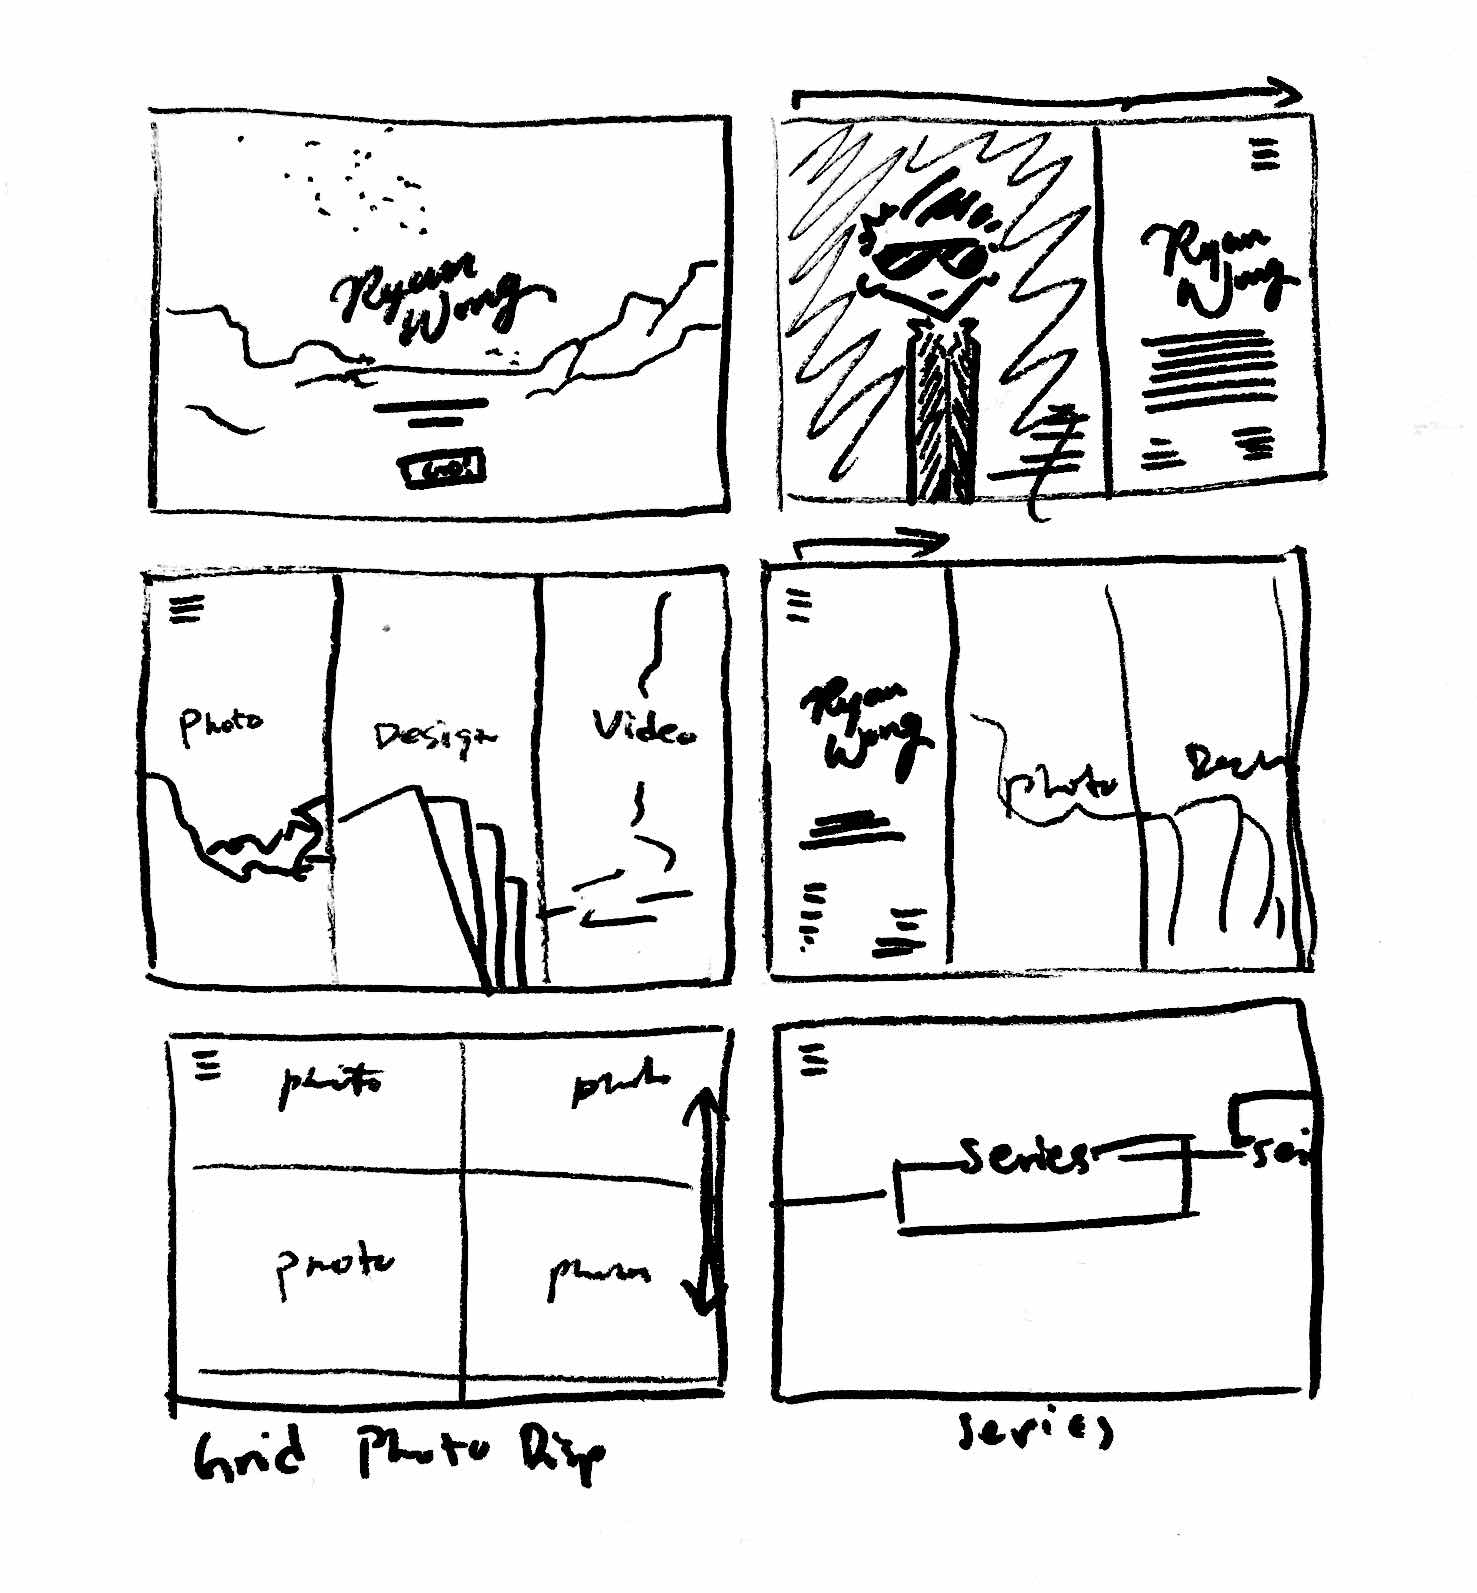 Ryan
Wong
Go!
Ryan
Wong
Photo
Design
Video
Ryan
Wong
photo
photo
photo
photo
photos
Series
Seri
Grid Photo Disp
Series